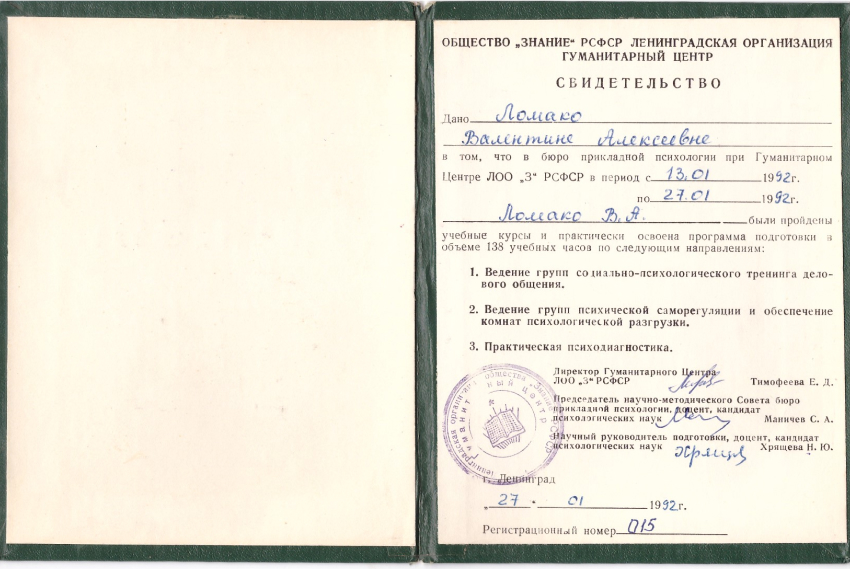 ОБЩЕСТВО „ЗНАНИЕ“ РСФСР ЛЕНИНГРАДСКАЯ ОРГАНИЗАЦИЯ
ГУМАНИТАРНЫЙ ЦЕНТР
СВИДЕТЕЛЬСТВО
Дано Ломако
Валентине Алексеевне
в том, что в бюро прикладной психологии при Гуманитарном
Центре ЛОО „З“ РСФСР в период с 13.01 1992г.
по 27.01 1992г.
Ломако В. А. были пройдены
учебные курсы и практически освоена программа подготовки в
объеме 138 учебных часов по следующим направлениям:
1. Ведение групп социально-психологического тренинга дело-
вого общения.
2. Ведение групп психической саморегуляции и обеспечение
комнат психологической разгрузки.
3. Практическая психодиагностика.
Директор Гуманитарного Центра
ЛОО „З“ РСФСР Тимофеева Е. Д.
Председатель научно-методического Совета бюро
прикладной психологии, доцент, кандидат
психологических наук Маничев С. А.
Научный руководитель подготовки, доцент, кандидат
психологических наук Хрящева Н. Ю.
гуманитарный центр
г. Ленинград
„27 “ 01 1992г.
Регистрационный номер 015